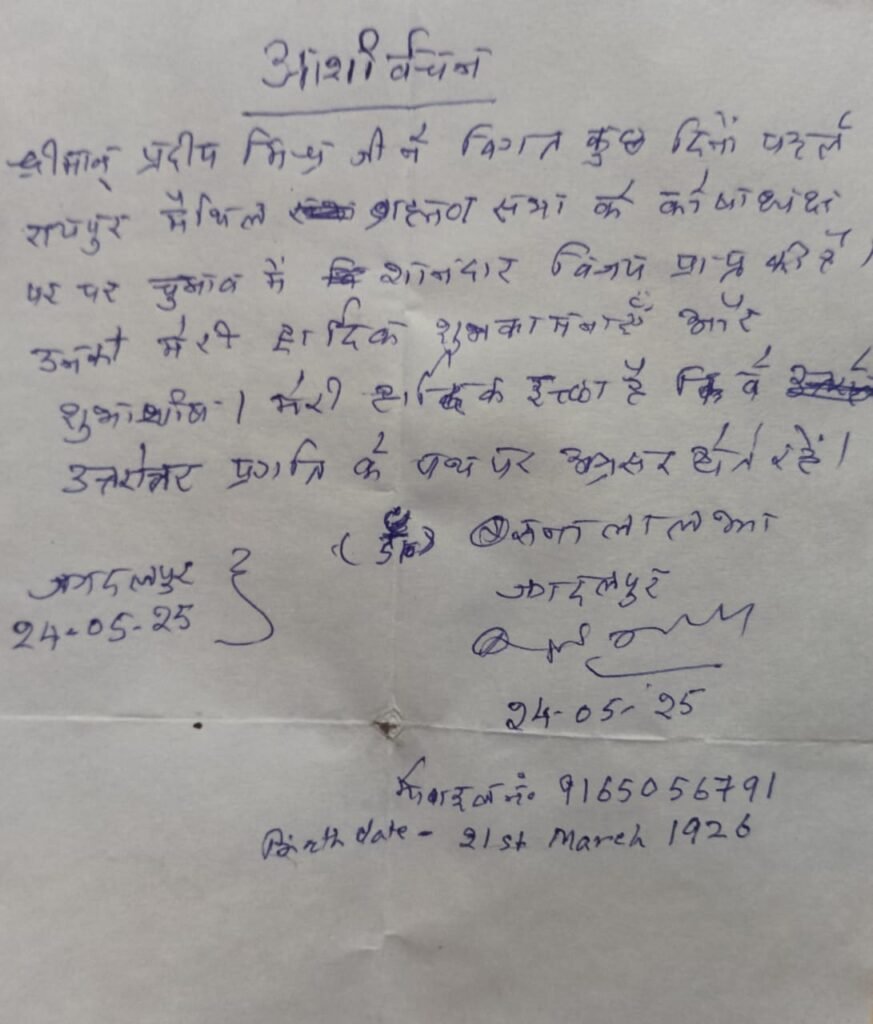 आशीर्वचन
श्रीमान् प्रदीप मिश्र जी ने विगत कुछ दिनों पहले
रायपुर मैथिल ब्राह्मण सभा के कोषाध्यक्ष
पर पर चुनाव में शानदार विजय प्राप्त की है।
उनको मेरी हार्दिक शुभकामनाएँ और
शुभाशीष। मेरी हार्दिक इच्छा है कि वे
उत्तरोत्तर प्रगति के पथ पर अग्रसर होते रहें।
लाल झा
जगदलपुर
24-05-25
जगदलपुर
24-05-25
मोबाइल नं॰ 9165056791
Birth date - 21st March 1926